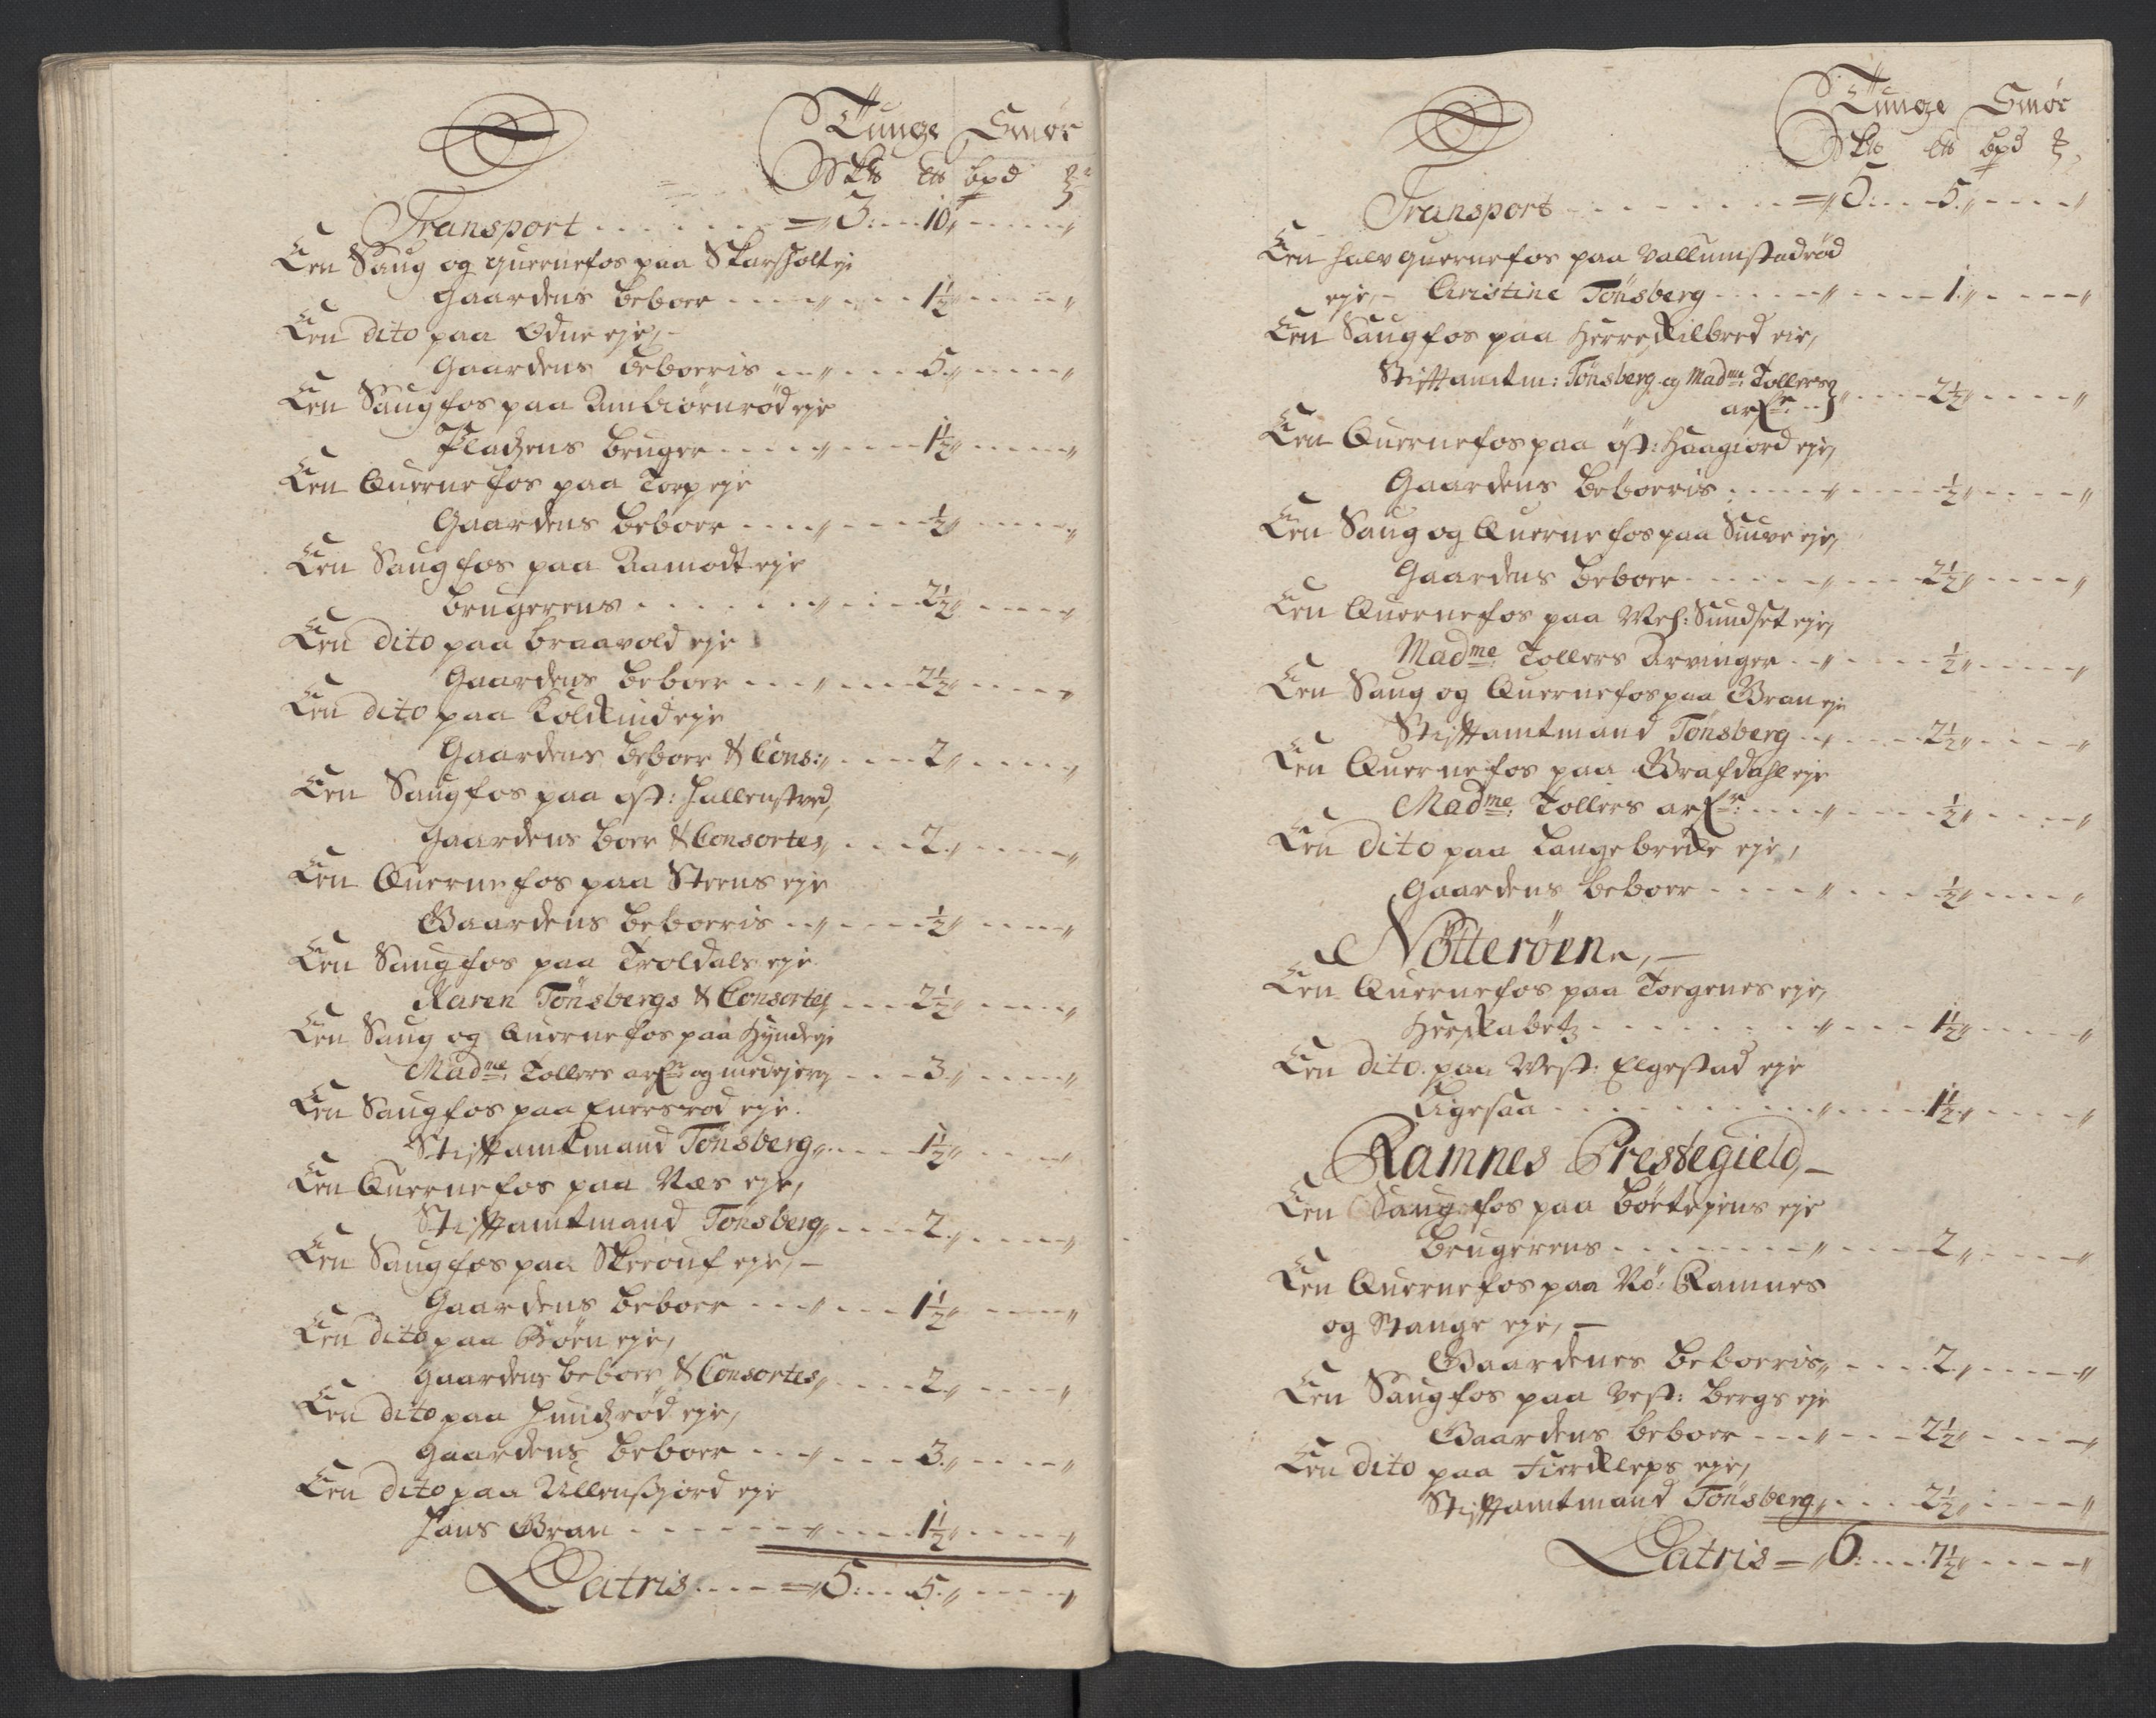 Tunge Smör
Sk℔ L℔ bpd
Transport 3: 10
Een Saug og quernefos paa Skarsholt eje
Gaardens beboer 1½
Een dito paa Odne eje,
Gaardens beboeris 5
Een Saugfos paa Ambiørnrød eje
Pladzens bruger 1½
Een Quernefos paa Torp eje
Gaardens beboer ½
Een Saugfos paa Aamodt eje
brugerens 2½
Een dito paa braavold eje
Gaardens beboer 2½
Een dito paa Kolkind eje
Gaardens beboer & Cons: 2
Een Saugfos paa øst: Hallenstved,
Gaardens boer & Consortes 2
Een Quernefos paa Steens eje
Gaardens beboeris ½
Een Saugfos paa Troldals eje
Karen Tönsbergs & Consortes 2½
Een Saug og Quernefos paa Hynd eje
Madme Tollers arf: og medejere 3
Een Saugfos paa Enersrød eje.
Stiftamtmand Tönsberg 1½
Een Quernefos paa Næs eje,
Stiftamtmand Tönsberg 2
Een Saugfos paa Skeouf eje,
Gaardens beboer 1½
Een dito paa Bøen eje,
Gaardens beboer & Consortes 2
Een dito paa Hundzrød eje,
Gaardens beboer 3
Een dito paa Ullensgiord eje
Hans Gran 1½
Latris 5: 5
Tunge Smör
Sk℔ L℔ bpd
Transport 5: 5
Een halv quernefos paa Vallumstadrød
eje, Christine Tönsberg 1
Een Saugfos paa Herre Kilbred eie,
Stiftamtm: Tönsberg og Madme Tollers
arf: 2½
Een Quernefos paa øst: Haagiord eje,
Gaardens beboeris ½
Een Saug og Quernefos paa Siuve eje,
Gaardens beboer 2½
Een Quernefos paa Vest: Sundset eje,
Madme Tollers Arvinger ½
Een Saug og Quernefos paa Gran eje
Stiftamtmand Tönsberg 2½
Een Quernefos paa Grafdahl eje
Madme Tollers arf: ½
Een dito paa Langebrekke eje,
Gaardens beboer ½
Nötteröen,
Een Quernefos paa Torgenes eje,
Herskabetz 1½
Een dito paa Vest: Elgestad eje
Ligesaa 1½
Ramnes Prestegield,
Een Saugfos paa börtejens eje
brugerens 2
Een Quernefos paa Nö: Ramnes
og Stange eje,
Gaardenes beboeris 2
Een Saugfos paa Vest: bergs eje
Gaardens beboer 2½
Een dito paa Fierkleps eje,
Stiftamtmand Tönsberg 2½
Latris 6: 7½